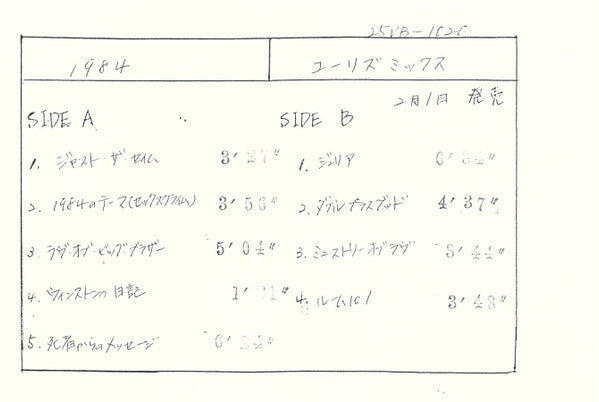 1984 ユーリズミックス
2月1日 発売
SIDE A SIDE B
1. ジャスト・ザ・セイム 3'27" 1. ジュリア
2. 1984のテーマ(セックスクライム) 3'56" 2. ダブルプラスグッド 4'37"
3. ラヴ・オブ・ビッグ・ブラザー 5'04" 3. ミニストリーオブラヴ 3'44"
4. ウィンストンの日記 4. ルーム101 3'48"
5. 死者からのメッセージ